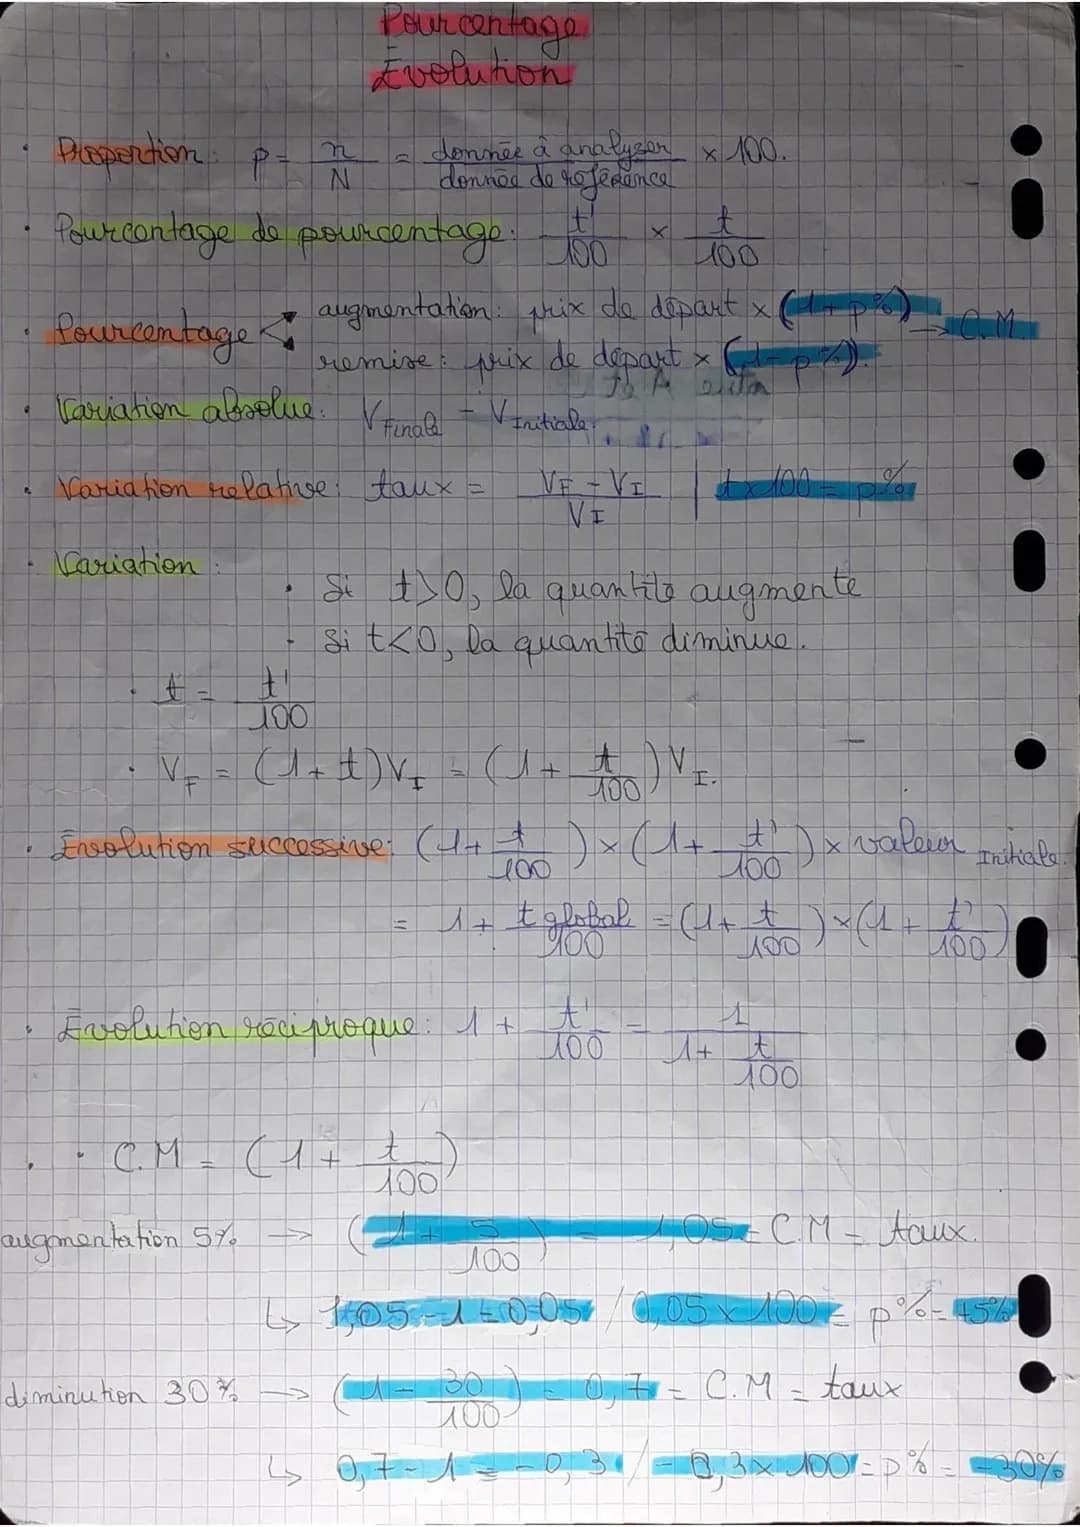 Pourcentage
Évolution
• Proportion : p = n/N = donnée à analyser/donnée de référence × 100.
• Pourcentage de pourcentage : t'/100 × t/100
• Pourcentage augmentation : prix de départ × (1 + p%) → C.M
remise : prix de départ × (1 - p%).
• Variation absolue : V Finale - V Initiale.
• Variation relative : taux = VF - VI/VI | t×100 = p%
• Variation :
• Si t>0, la quantité augmente
• Si t<0, la quantité diminue.
• t = t'/100
• VF = (1 + t)VI = (1 + t/100)VI.
• Évolution successive : (1 + t/100) × (1 + t'/100) × valeur Initiale.
= 1 + t global/100 = (1 + t/100) × (1 + t'/100)
• Évolution réciproque : 1 + t'/100 = 1/1 + t/100
• • C.M = (1 + t/100)
augmentation 5% → (1 + 5/100) = 1,05 = C.M = taux.
↳ 1,05 - 1 = 0,05 / 0,05 × 100 = p% = +5%
diminution 30% → (1 - 30/100) = 0,7 = C.M = taux
↳ 0,7 - 1 = -0,3 / -0,3 × 100 = p% = -30%